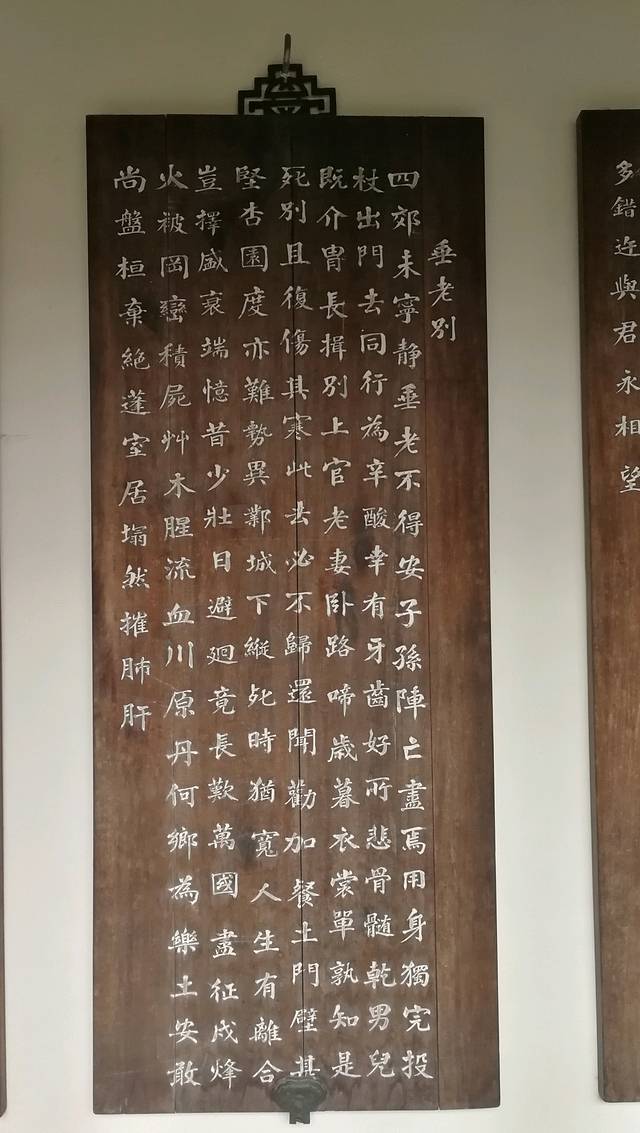 多錯迕與君永相望
垂老別
四郊未寧静垂老不得安子孫陣亡盡焉用身獨完投
杖出門去同行為辛酸幸有牙齒好所悲骨髓乾男兒
既介胄長揖別上官老妻卧路啼歲暮衣裳單孰知是
死別且復傷其寒此去必不歸還聞勸加餐土門壁甚
堅杏園度亦難勢異鄴城下縱死時猶寬人生有離合
豈擇盛衰端憶昔少壯日避迴竟長歎萬國盡征戍烽
火被岡巒積屍艸木腥流血川原丹何鄉為樂土安敢
尚盤桓棄絕蓬室居塌然摧肺肝